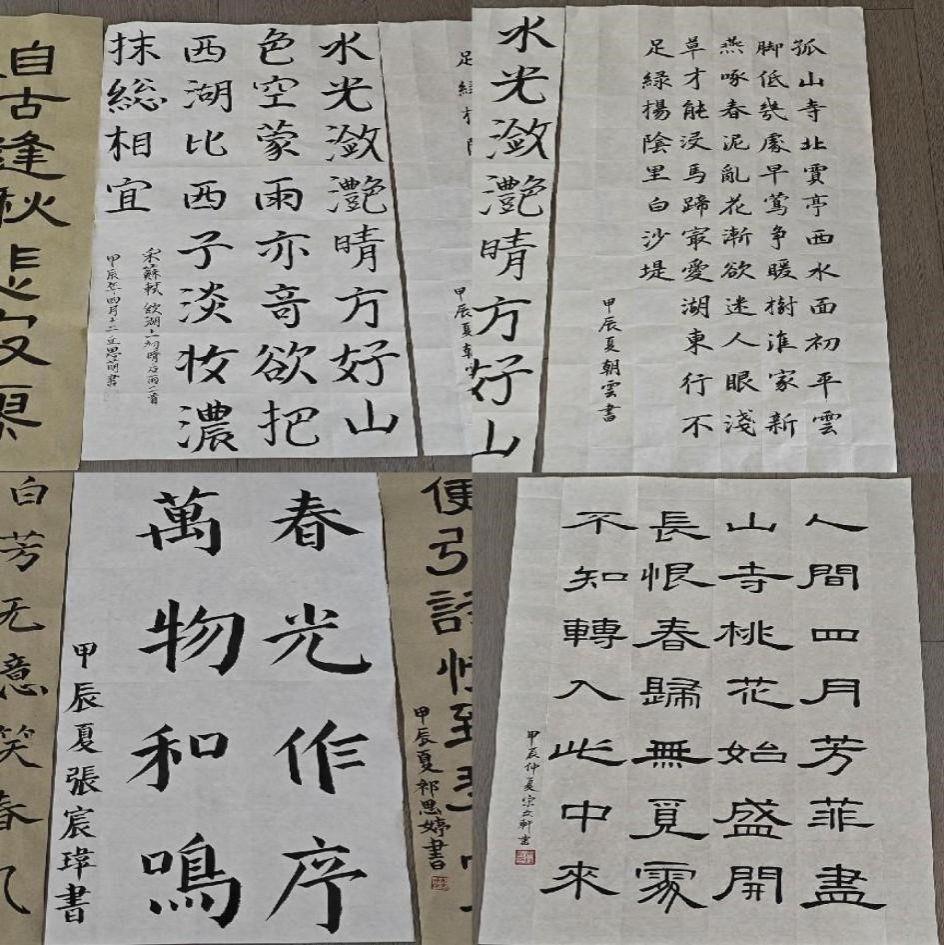 水光潋灧晴方好山
色空蒙雨亦奇欲把
西湖比西子淡妝濃
抹総相宜
宋蘇軾飲湖上初晴后雨二首
甲辰年四月十二丘思萌書
自古逢秋悲寂寥
足綠楊陰
甲辰夏朝雲
孤山寺北賈亭西水面初平雲
脚低幾處早鶯争暖樹誰家新
燕啄春泥亂花漸欲迷人眼淺
草才能浸馬蹄㝡愛湖東行不
足綠楊陰里白沙堤
甲辰夏朝雲書
水光潋灧晴方好山
便引詩情到碧
甲辰夏祁思婷書
春光作序
萬物和鳴
甲辰夏張宸瑋書
白芳无意笑春
人間四月芳菲盡
山寺桃花始盛開
長恨春歸無覓處
不知轉入此中來
甲辰仲夏宗文軒書